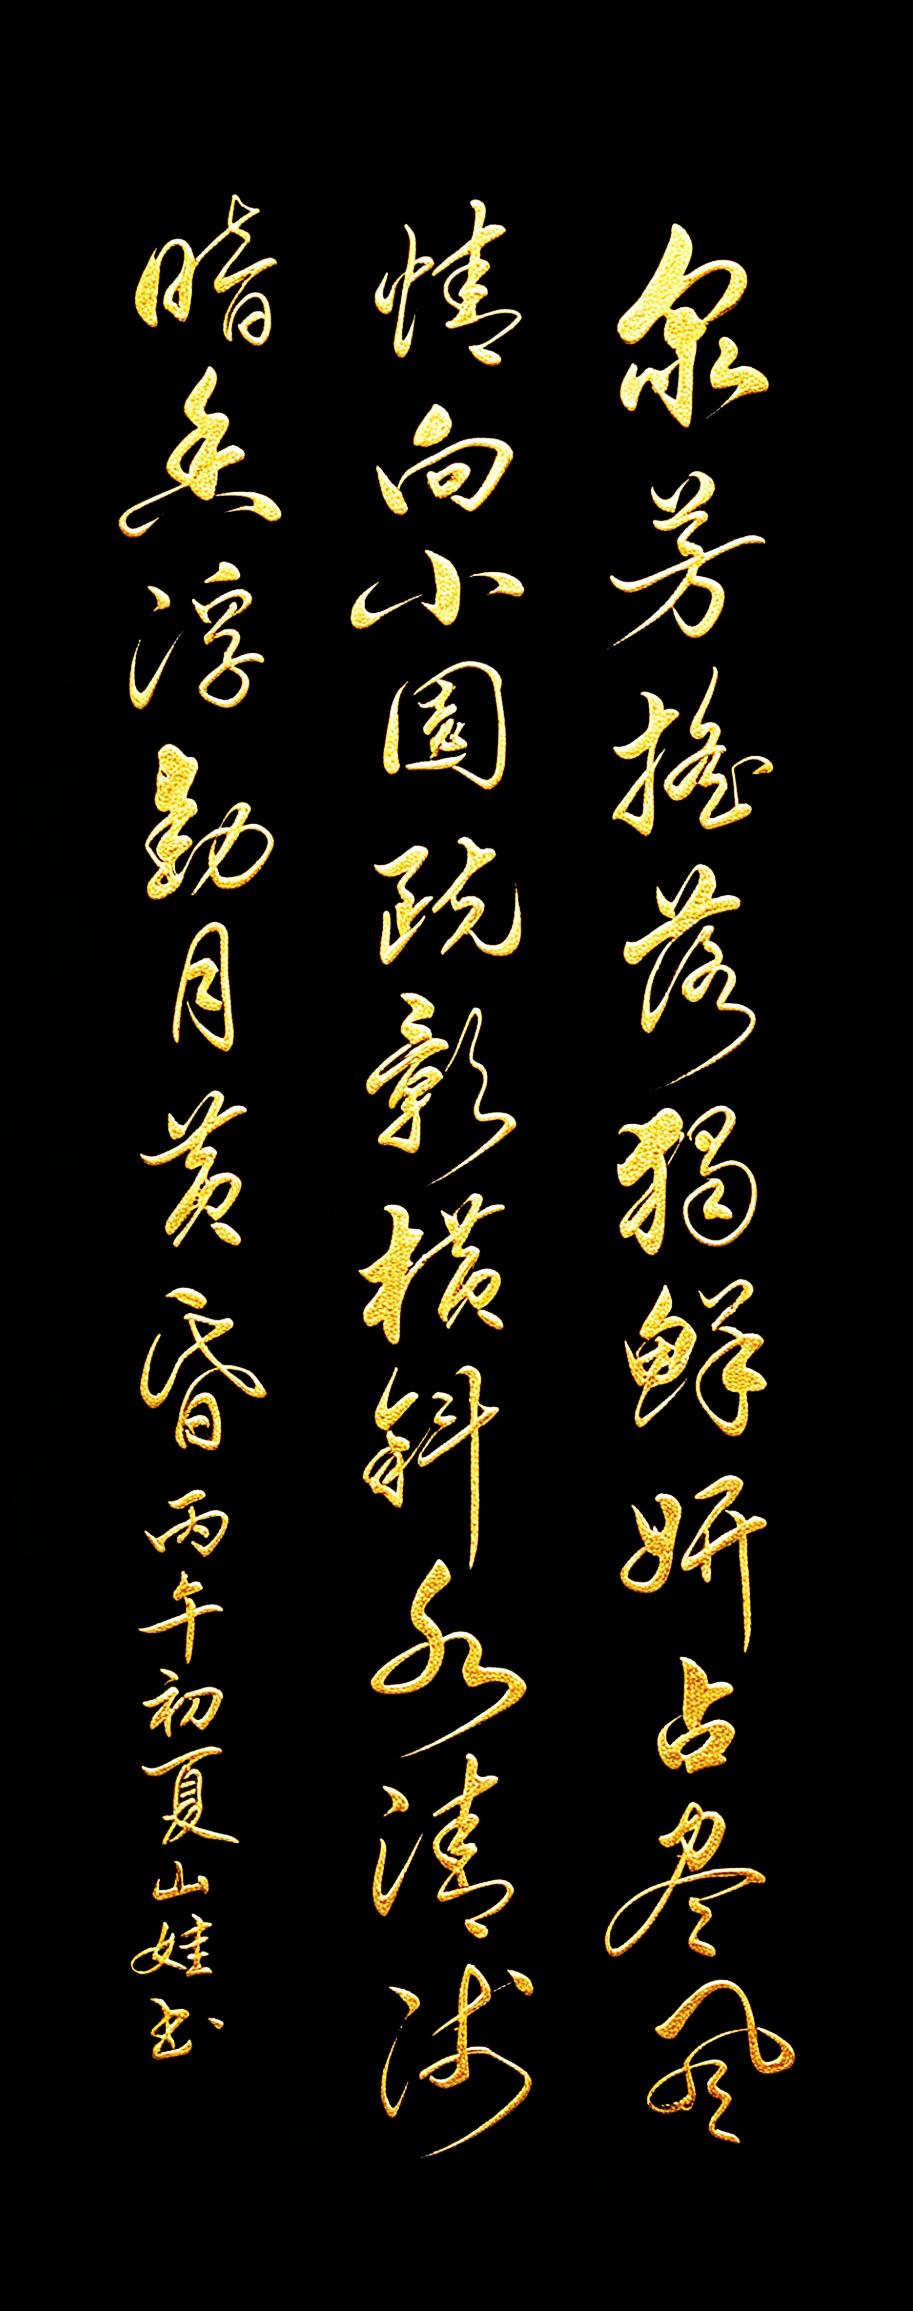 众芳摇落独鲜妍占尽风
情向小園疏影横斜水清浅
暗香浮動月黄昏丙午初夏山娃书